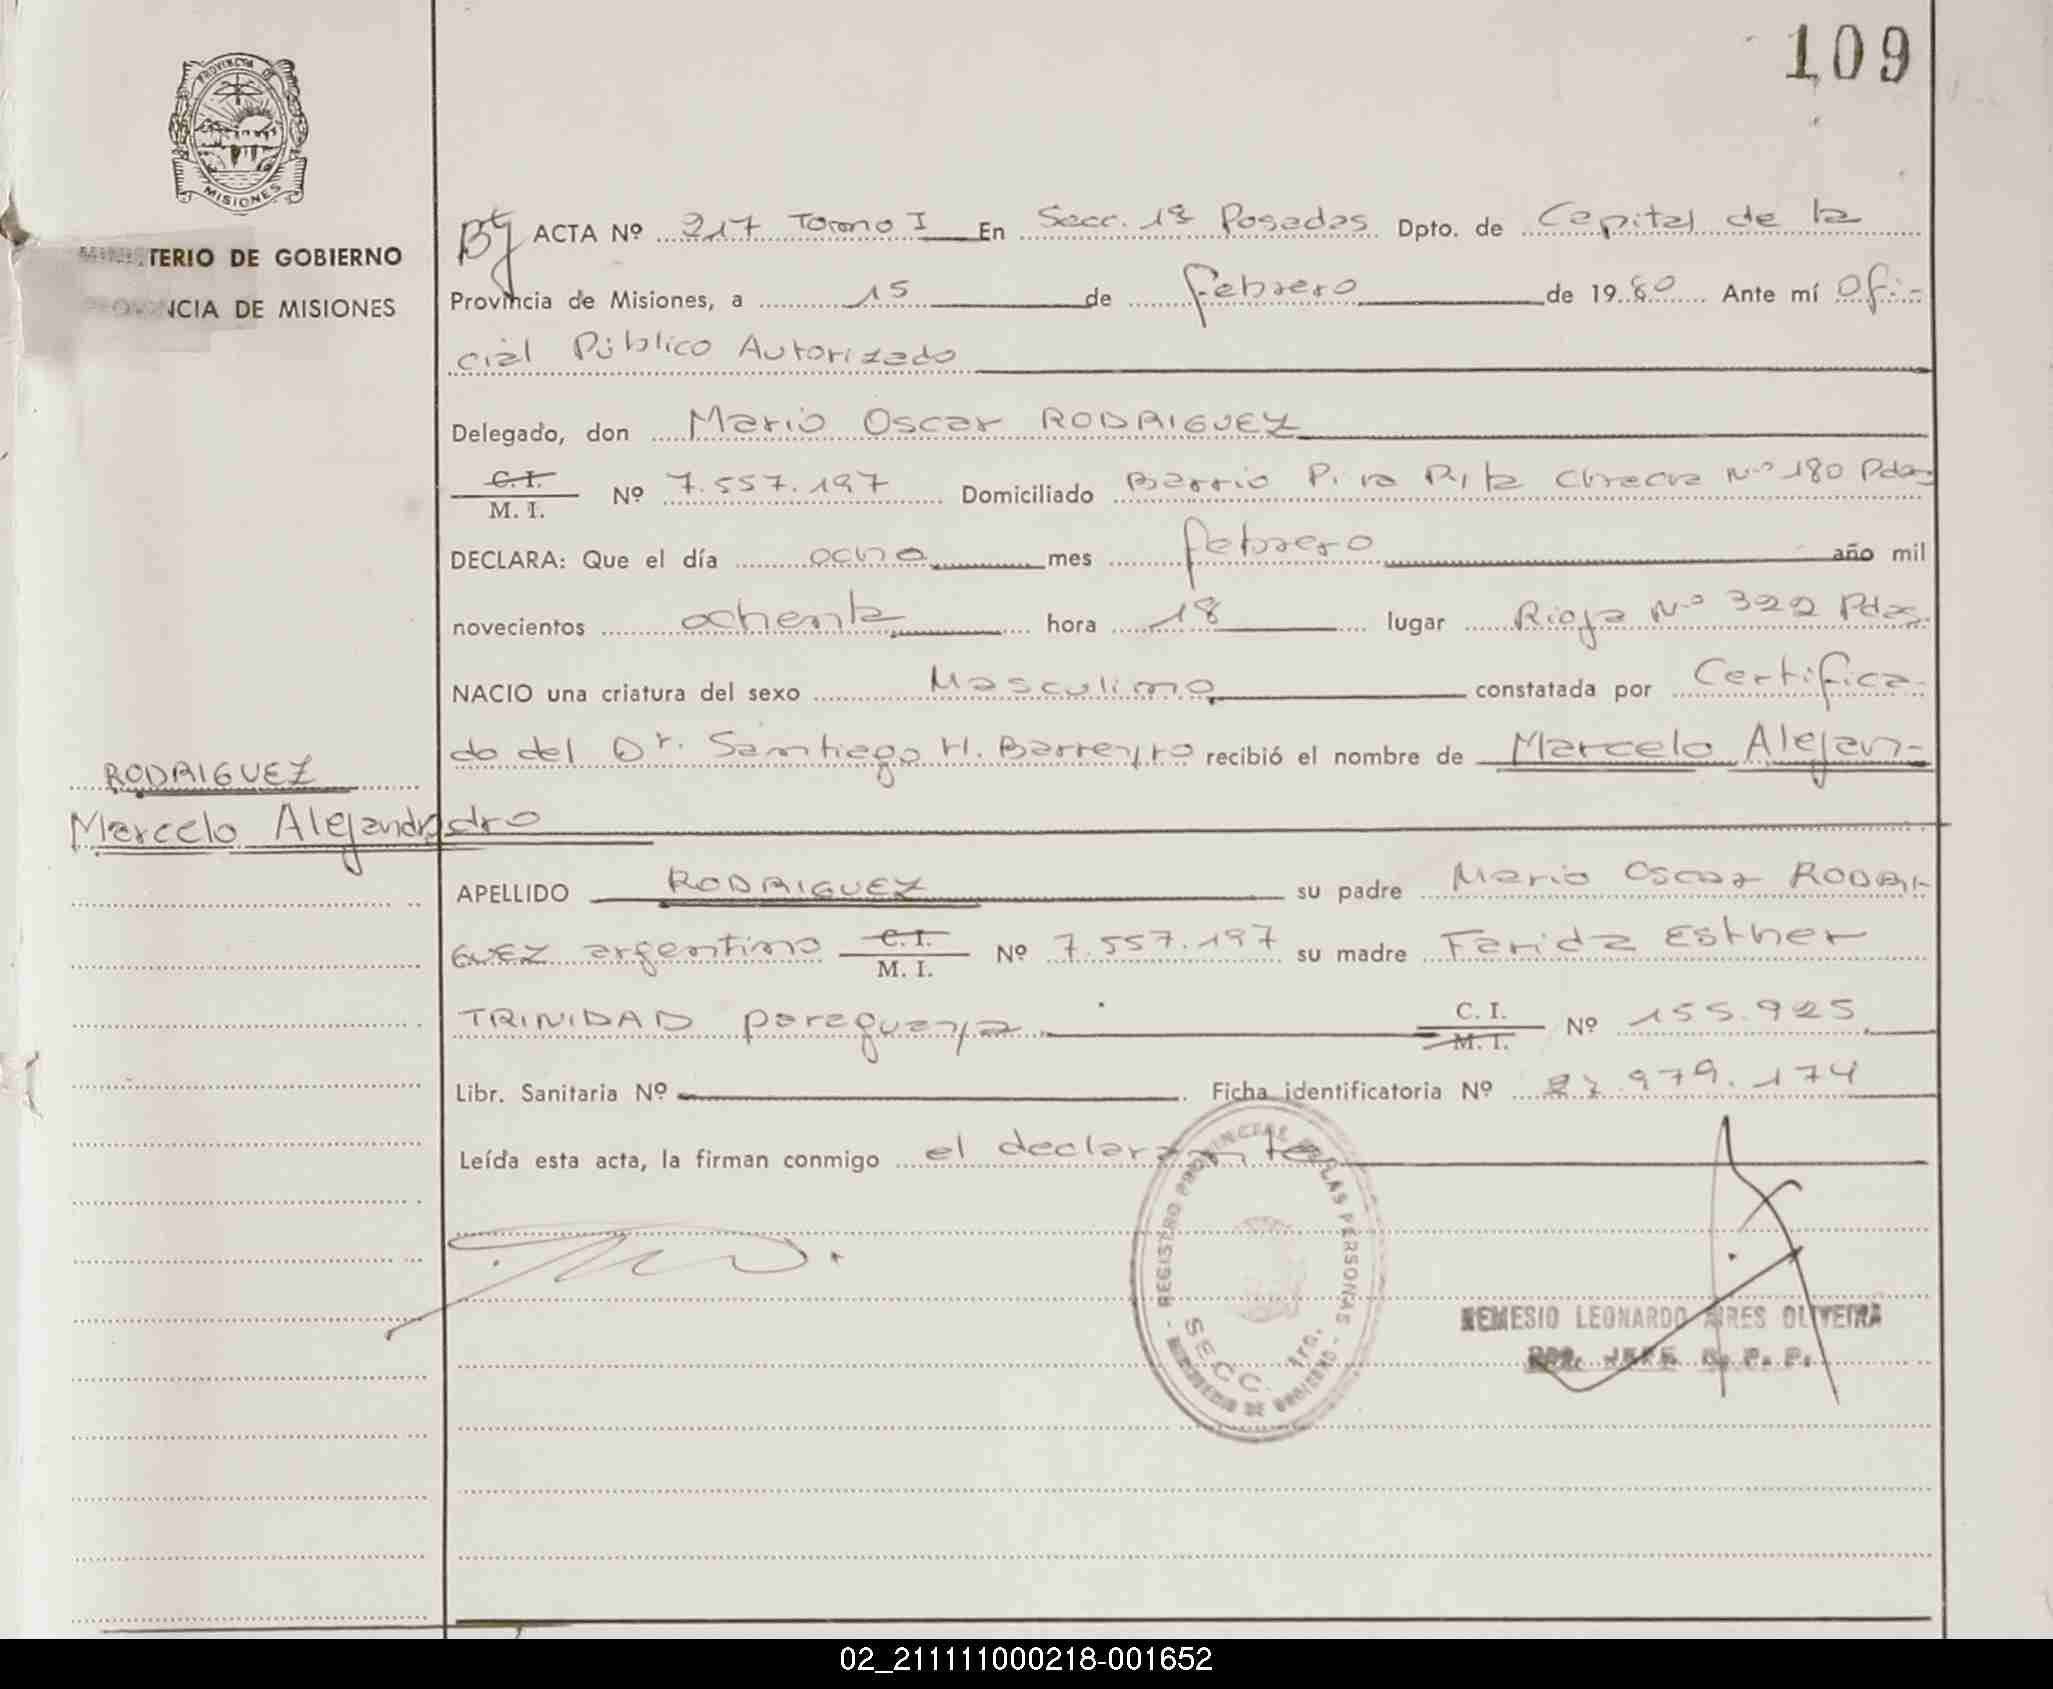 109
PROVINCIA DE
MISIONES
MINISTERIO DE GOBIERNO
PROVINCIA DE MISIONES
ACTA Nº 217 Tomo I En Secc. 1ª Posadas Dpto. de Capital de la
Provincia de Misiones, a 15 de febrero de 1980 Ante mí Ofi-
cial Público Autorizado
Delegado, don Mario Oscar RODRIGUEZ
C. I.
M. I. Nº 7.557.197 Domiciliado Barrio Chacra Nº 180 Pdas
DECLARA: Que el día ocho mes febrero año mil
novecientos ochenta hora 18 lugar Rioja Nº 322 Pdas.
NACIO una criatura del sexo Masculino constatada por Certifica-
do del Dr. Santiago H. Barreyro recibió el nombre de Marcelo Alejan-
dro
RODRIGUEZ
Marcelo Alejandro
APELLIDO RODRIGUEZ su padre Mario Oscar RODRI-
GUEZ argentino C. I. M. I. Nº 7.557.197 su madre Farida Esther
TRINIDAD paraguaya C. I. M. I. Nº 155.925
Libr. Sanitaria Nº Ficha identificatoria Nº 27.979.174
Leída esta acta, la firman conmigo el declarante
REGISTRO PROVINCIAL DE LAS PERSONAS
SECC. 1ra.
MINISTERIO DE GOBIERNO
NEMESIO LEONARDO AIRES OLIVEIRA
JEFE R. P. P.
02_211111000218-001652